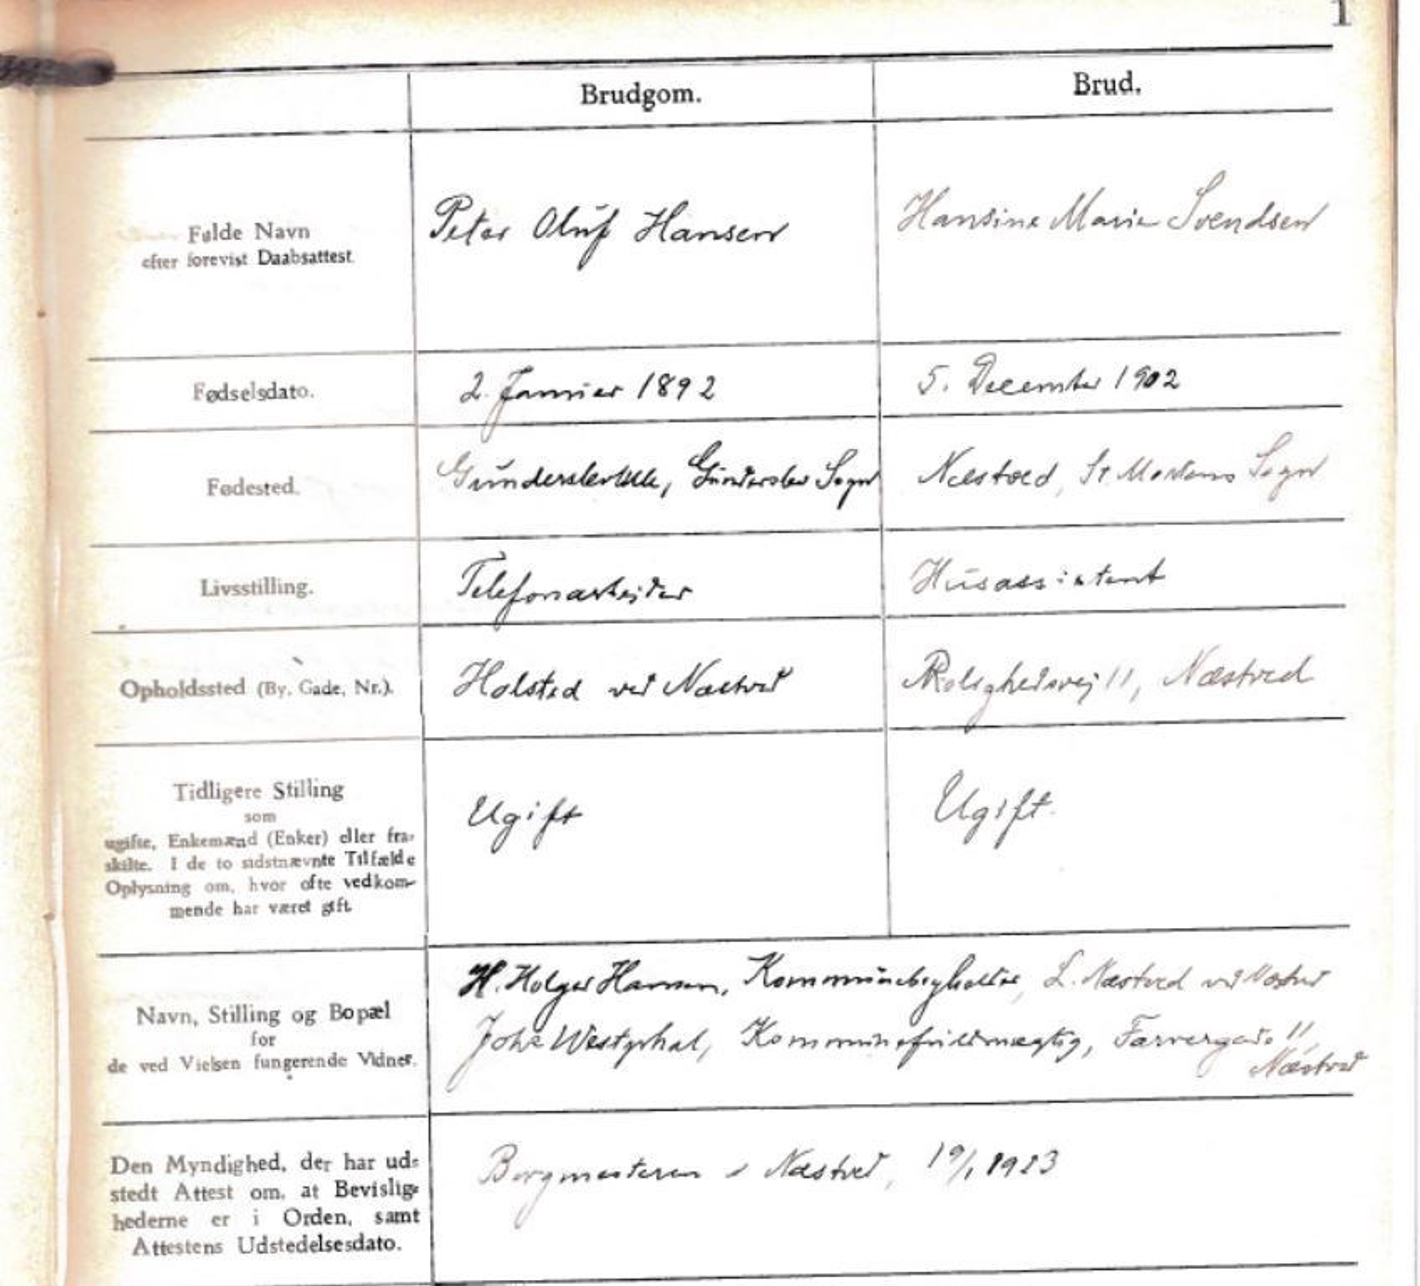 1
Brudgom. Brud.
Fulde Navn
efter forevist Daabsattest.
Peter Oluf Hansen Hansine Marie Svendsen
Fødselsdato. 2. Januar 1892 5. December 1902
Fødested. Gunderslev Sogn Næstved, St Mortens Sogn
Livsstilling. Telefonarbejder Husassistent
Opholdssted (By, Gade, Nr.). Holsted ved Næstved Rolighedsvej 11, Næstved
Tidligere Stilling
som
ugifte, Enkemænd (Enker) eller fra-
skilte. I de to sidstnævnte Tilfælde
Oplysning om, hvor ofte vedkom-
mende har været gift.
Ugift Ugift.
Navn, Stilling og Bopæl
for
de ved Vielsen fungerende Vidner.
H. Holger Hansen, L. Næstved ved Næstved
Johs Westphal, Kommunefuldmægtig, Farvergade 11,
Næstved
Den Myndighed, der har ud-
stedt Attest om, at Bevislig-
hederne er i Orden, samt
Attestens Udstedelsesdato.
Borgmesteren i Næstved, 19/1 1923